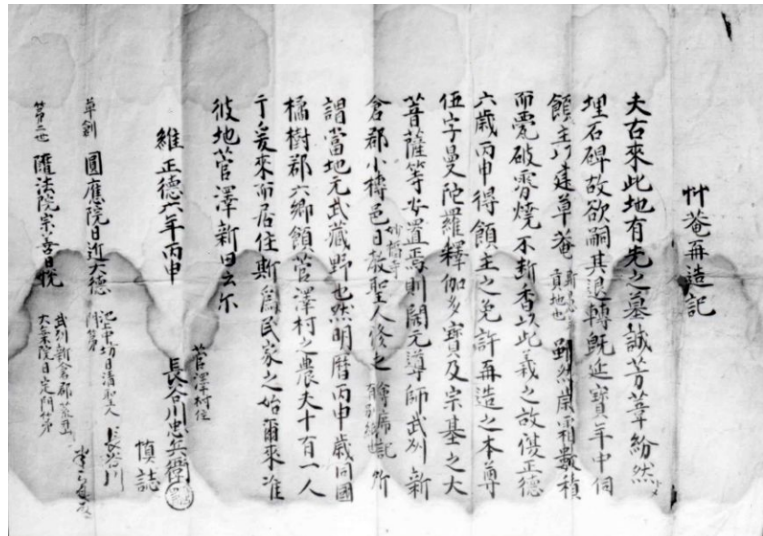 艸菴再造記
夫古來此地有先之墓誠芳葦紛然
埋石碑故欲嗣其退轉既延寶年中伺
領主以建草菴 貢地也 雖然風霜數積
而甍破霄燒不斷香以此義之故優正德
六歳丙申得領主之免許再造之本尊
伍字曼陀羅釋伽多寶及宗基之大
菩薩等安置焉則開元導師武州新
倉郡小榑邑妙福寺日教聖人修之 所
謂當地元武藏野也然明曆丙申歳同國
橘樹郡六鄉領菅澤村之農夫十百一人
于爰來而居住斯爲民家之始爾來准
彼地菅澤新田云尓
維正德六年丙申
菅澤村住
長谷川忠兵衛
慎誌
草創 圓應院日近大德
第二世 隨法院宗善日悦